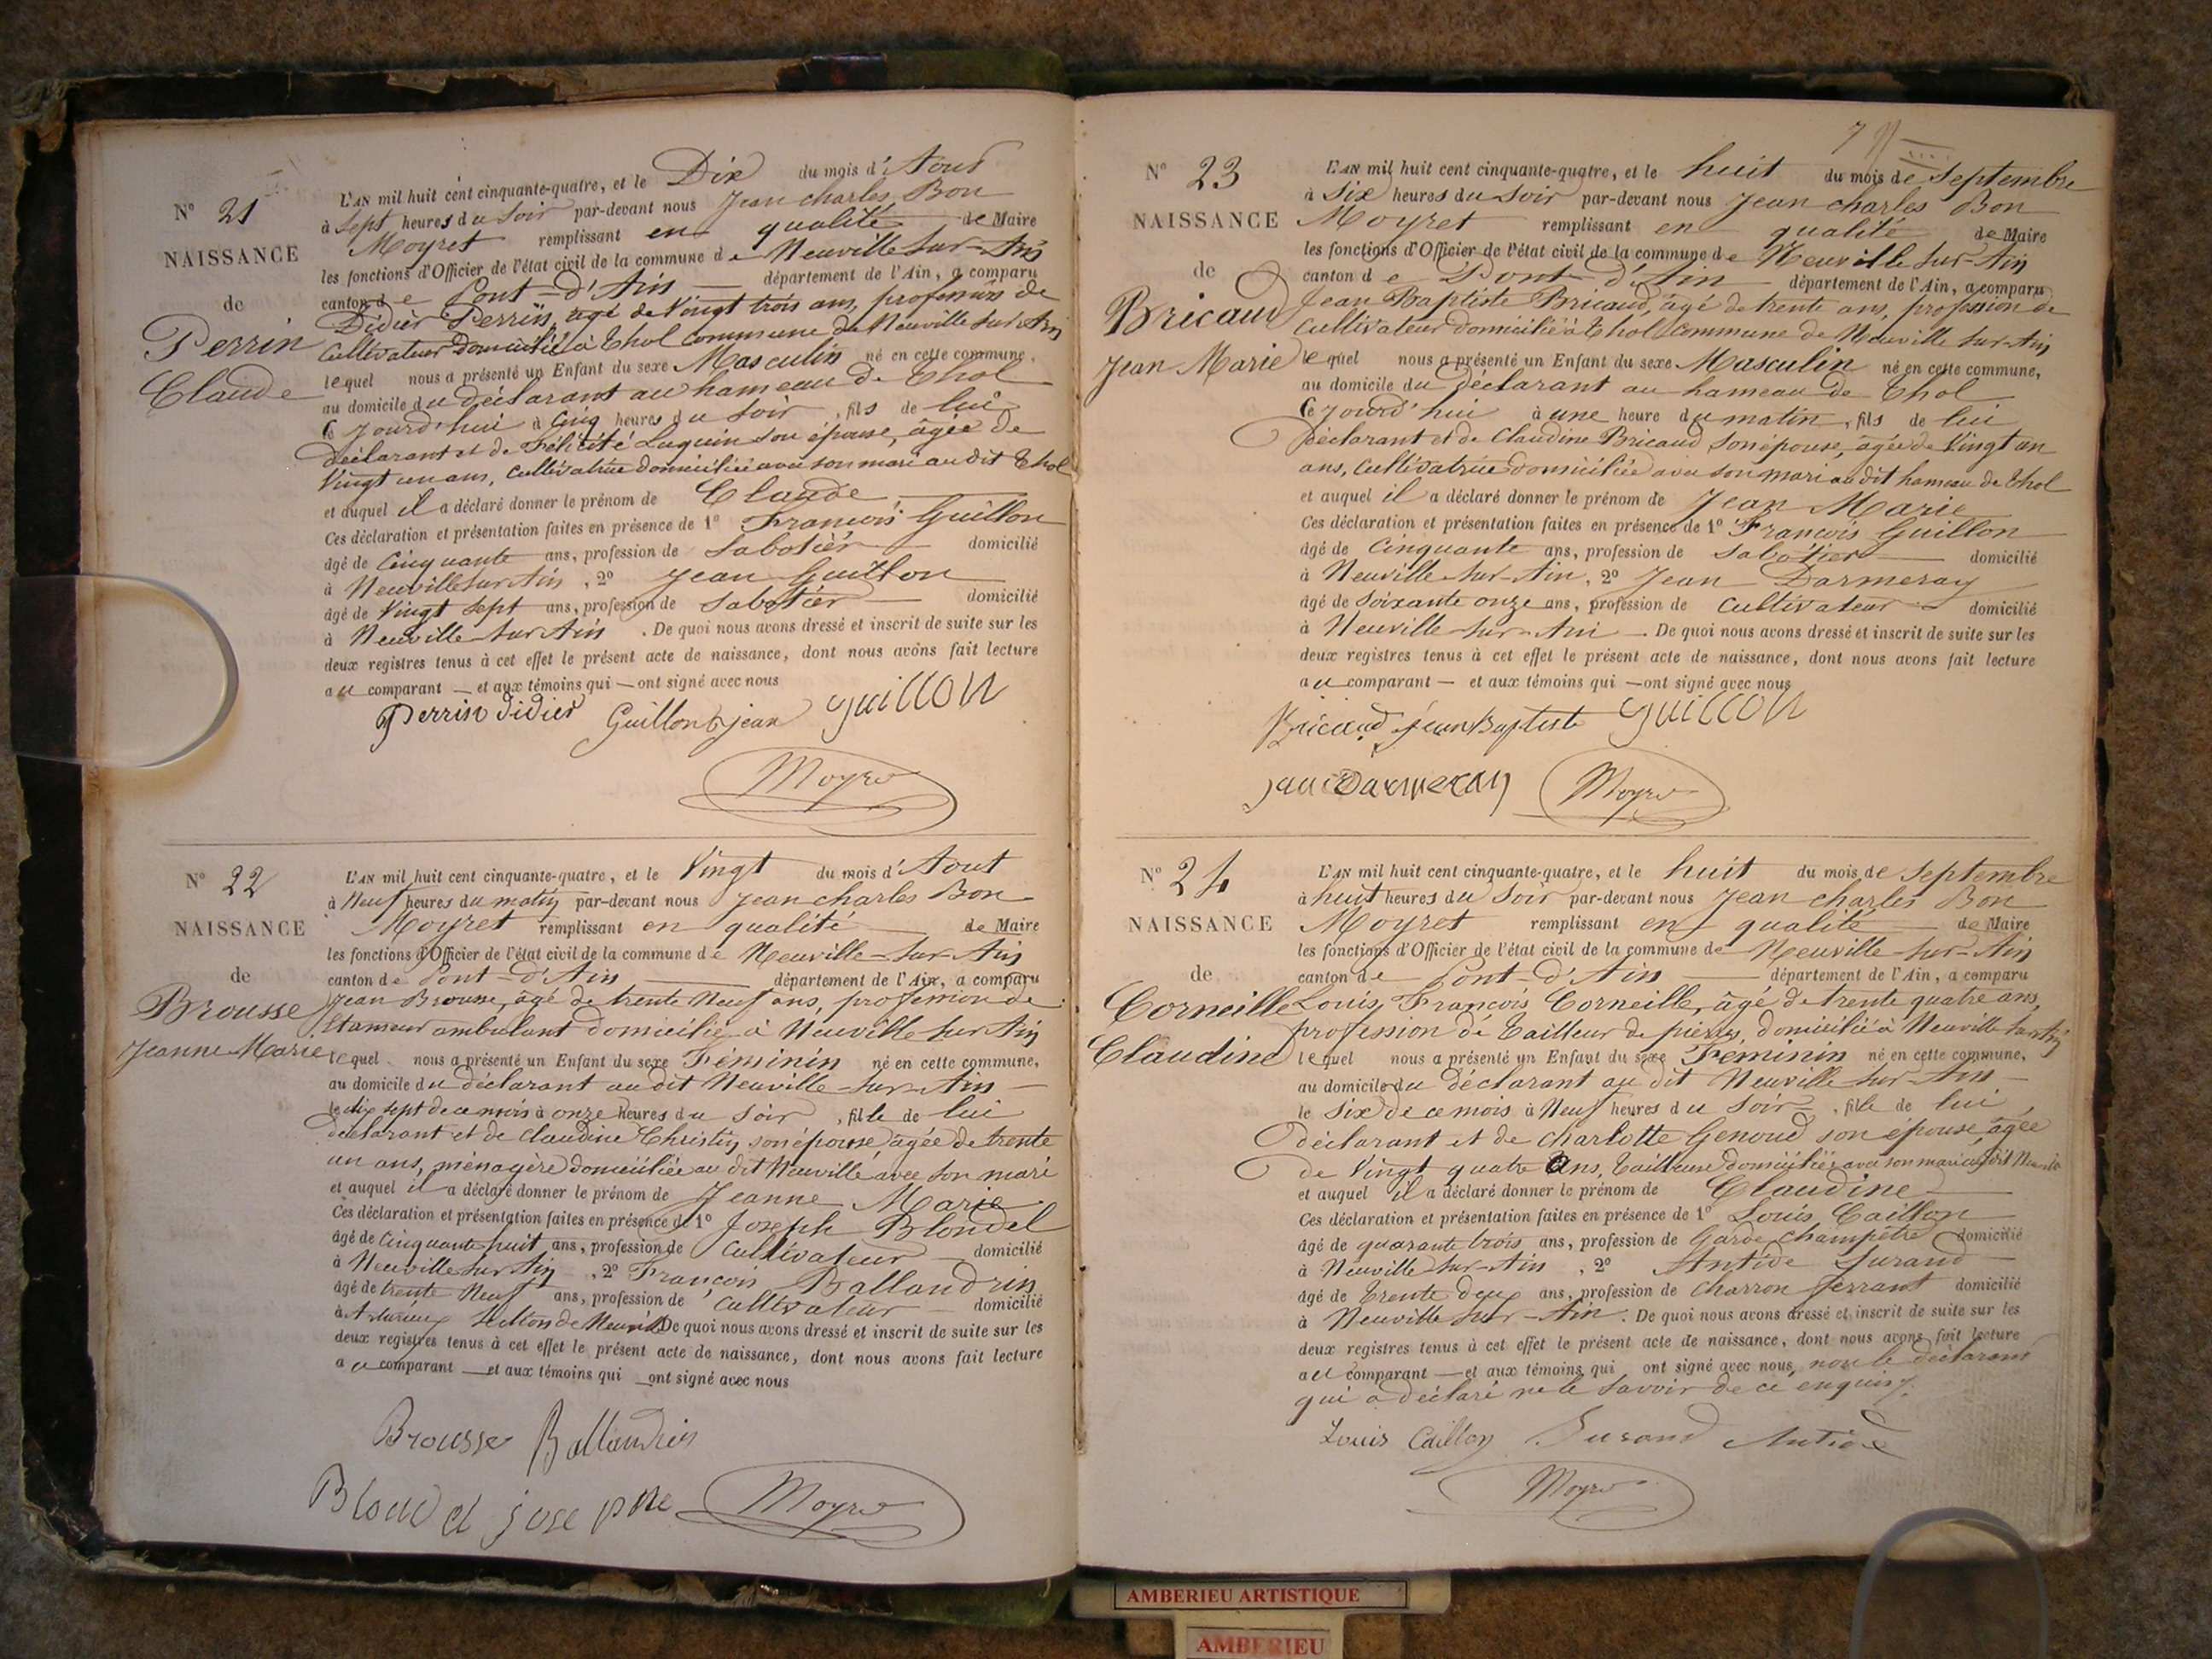 N° 21
NAISSANCE
de
Perrin
Claude
L'AN mil huit cent cinquante-quatre, et le Dix du mois d'Aout
à Sept heures du Soir par-devant nous Jean charles Bon
Moyret remplissant en qualité de Maire
les fonctions d'Officier de l'état civil de la commune de Neuville sur-Ain
canton de Pont-d'Ain département de l'Ain, a comparu
Didier Perrin, agé de Vingt trois ans, profession de
Cultivateur domicilié à Thol commune de Neuville sur Ain
lequel nous a présenté un Enfant du sexe Masculin né en cette commune,
au domicile du déclarant au hameau de Thol
Ce jourd'hui à Cinq heures du Soir, fils de lui
déclarant et de Félicité Luquin son épouse, âgée de
Vingt un ans, cultivatrice domiciliée avec son mari au dit Thol
et auquel il a déclaré donner le prénom de Claude
Ces déclaration et présentation faites en présence de 1° François Guillon
âgé de Cinquante ans, profession de Sabotier domicilié
à Neuville sur Ain, 2° Jean Guillon
âgé de Vingt Sept ans, profession de Sabotier domicilié
à Neuville sur Ain. De quoi nous avons dressé et inscrit de suite sur les
deux registres tenus à cet effet le présent acte de naissance, dont nous avons fait lecture
au comparant — et aux témoins qui — ont signé avec nous
Perrin didier Guillon jean Guillon
Moyret
N° 22
NAISSANCE
de
Brousse
Jeanne Marie
L'AN mil huit cent cinquante-quatre, et le Vingt du mois d'Aout
à Neuf heures du matin par-devant nous Jean charles Bon
Moyret remplissant en qualité de Maire
les fonctions d'Officier de l'état civil de la commune de Neuville-sur-Ain
canton de Pont-d'Ain département de l'Ain, a comparu
Jean Brousse, âgé de trente Neuf ans, profession de
Etameur ambulant domicilié à Neuville sur Ain
lequel nous a présenté un Enfant du sexe Féminin né en cette commune,
au domicile du déclarant au dit Neuville-sur-Ain
le dix sept de ce mois à onze heures du Soir, fille de lui
déclarant et de Claudine Christin son épouse âgée de trente
un ans, ménagère domiciliée au dit Neuville avec son mari
et auquel il a déclaré donner le prénom de Jeanne Marie
Ces déclaration et présentation faites en présence de 1° Joseph Blondel
âgé de Cinquante huit ans, profession de Cultivateur domicilié
à Neuville sur Ain, 2° François Ballandrin
âgé de trente Neuf ans, profession de Cultivateur domicilié
à de Neuville De quoi nous avons dressé et inscrit de suite sur les
deux registres tenus à cet effet le présent acte de naissance, dont nous avons fait lecture
au comparant — et aux témoins qui — ont signé avec nous
Brousse Ballandrin
Blondel josephe Moyret
N° 23
NAISSANCE
de
Bricaud
Jean Marie
7
L'AN mil huit cent cinquante-quatre, et le huit du mois de Septembre
à Six heures du Soir par-devant nous Jean charles Bon
Moyret remplissant en qualité de Maire
les fonctions d'Officier de l'état civil de la commune de Neuville sur-Ain
canton de Pont-d'Ain département de l'Ain, a comparu
Jean Baptiste Bricaud, âgé de trente ans, profession de
Cultivateur domicilié à Thol commune de Neuville sur-Ain
lequel nous a présenté un Enfant du sexe Masculin né en cette commune,
au domicile du déclarant au hameau de Thol
Ce jourd'hui à une heure du matin, fils de lui
déclarant et de Claudine Bricaud son épouse, âgée de Vingt un
ans, Cultivatrice domiciliée avec son mari au dit hameau de Thol
et auquel il a déclaré donner le prénom de Jean Marie
Ces déclaration et présentation faites en présence de 1° François Guillon
âgé de Cinquante ans, profession de Sabotier domicilié
à Neuville sur-Ain, 2° Jean Darmeray
âgé de Soixante onze ans, profession de Cultivateur domicilié
à Neuville-sur-Ain. De quoi nous avons dressé et inscrit de suite sur les
deux registres tenus à cet effet le présent acte de naissance, dont nous avons fait lecture
au comparant — et aux témoins qui — ont signé avec nous
Bricaud jean Baptiste Guillon
Darmeray Moyret
N° 24
NAISSANCE
de
Corneille
Claudine
L'AN mil huit cent cinquante-quatre, et le huit du mois de Septembre
à huit heures du Soir par-devant nous Jean charles Bon
Moyret remplissant en qualité de Maire
les fonctions d'Officier de l'état civil de la commune de Neuville-sur-Ain
canton de Pont-d'Ain département de l'Ain, a comparu
Louis, François Corneille, âgé de trente quatre ans,
profession de Tailleur de pierres, domicilié à Neuville sur Ain
lequel nous a présenté un Enfant du sexe Féminin né en cette commune,
au domicile du déclarant au dit Neuville sur-Ain
le Six de ce mois à Neuf heures du Soir, fille de lui
déclarant et de charlotte Genoud son épouse, âgée
de Vingt quatre Ans, Tailleuse domiciliée avec son mari au dit Neuville
et auquel il a déclaré donner le prénom de Claudine
Ces déclaration et présentation faites en présence de 1° Louis Caillon
âgé de quarante trois ans, profession de Garde champêtre domicilié
à Neuville sur-Ain, 2° Antide Durand
âgé de Trente deux ans, profession de Charron ferrant domicilié
à Neuville sur-Ain. De quoi nous avons dressé et inscrit de suite sur les
deux registres tenus à cet effet le présent acte de naissance, dont nous avons fait lecture
au comparant — et aux témoins qui ont signé avec nous, non le déclarant
qui a déclaré ne le savoir de ce enquis.
Louis Caillon Durand Antide
Moyret
AMBERIEU ARTISTIQUE
AMBERIEU